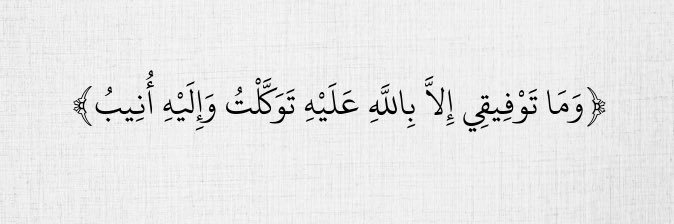 ﴿وَمَا تَوْفِيقِي إِلاَّ بِاللَّهِ عَلَيْهِ تَوَكَّلْتُ وَإِلَيْهِ أُنِيبُ﴾